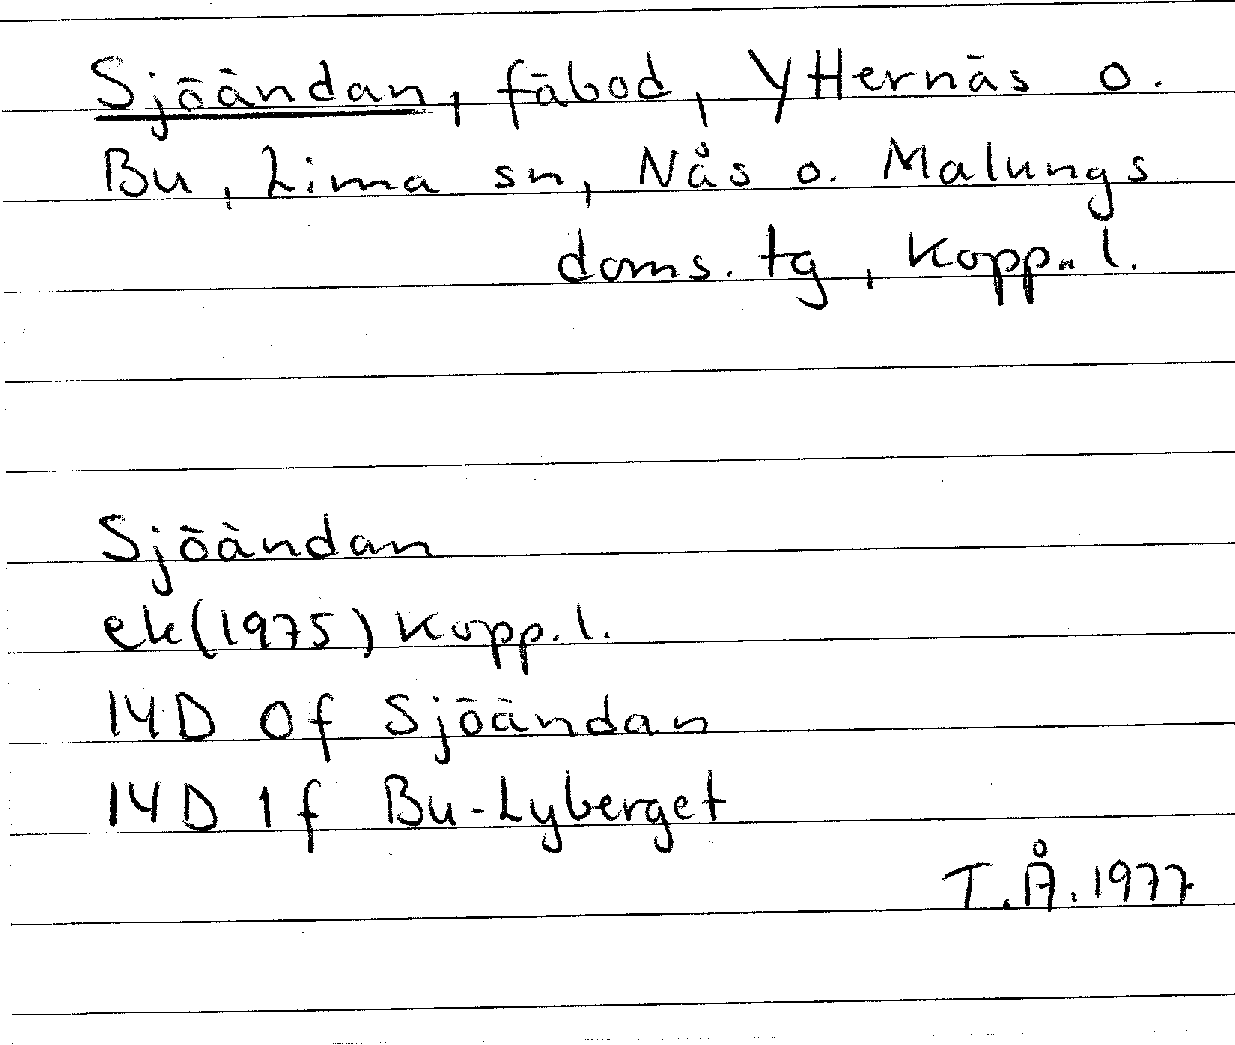 Sjöändan, fäbod, YHernäs o.
Bu, Lima sn, Nås o. Malungs
doms. tg, Kopp. l.
Sjöändan
ek(1975) Kopp. l.
14D 0f Sjöändan
14D 1f Bu-Lyberget
T.Å. 1977